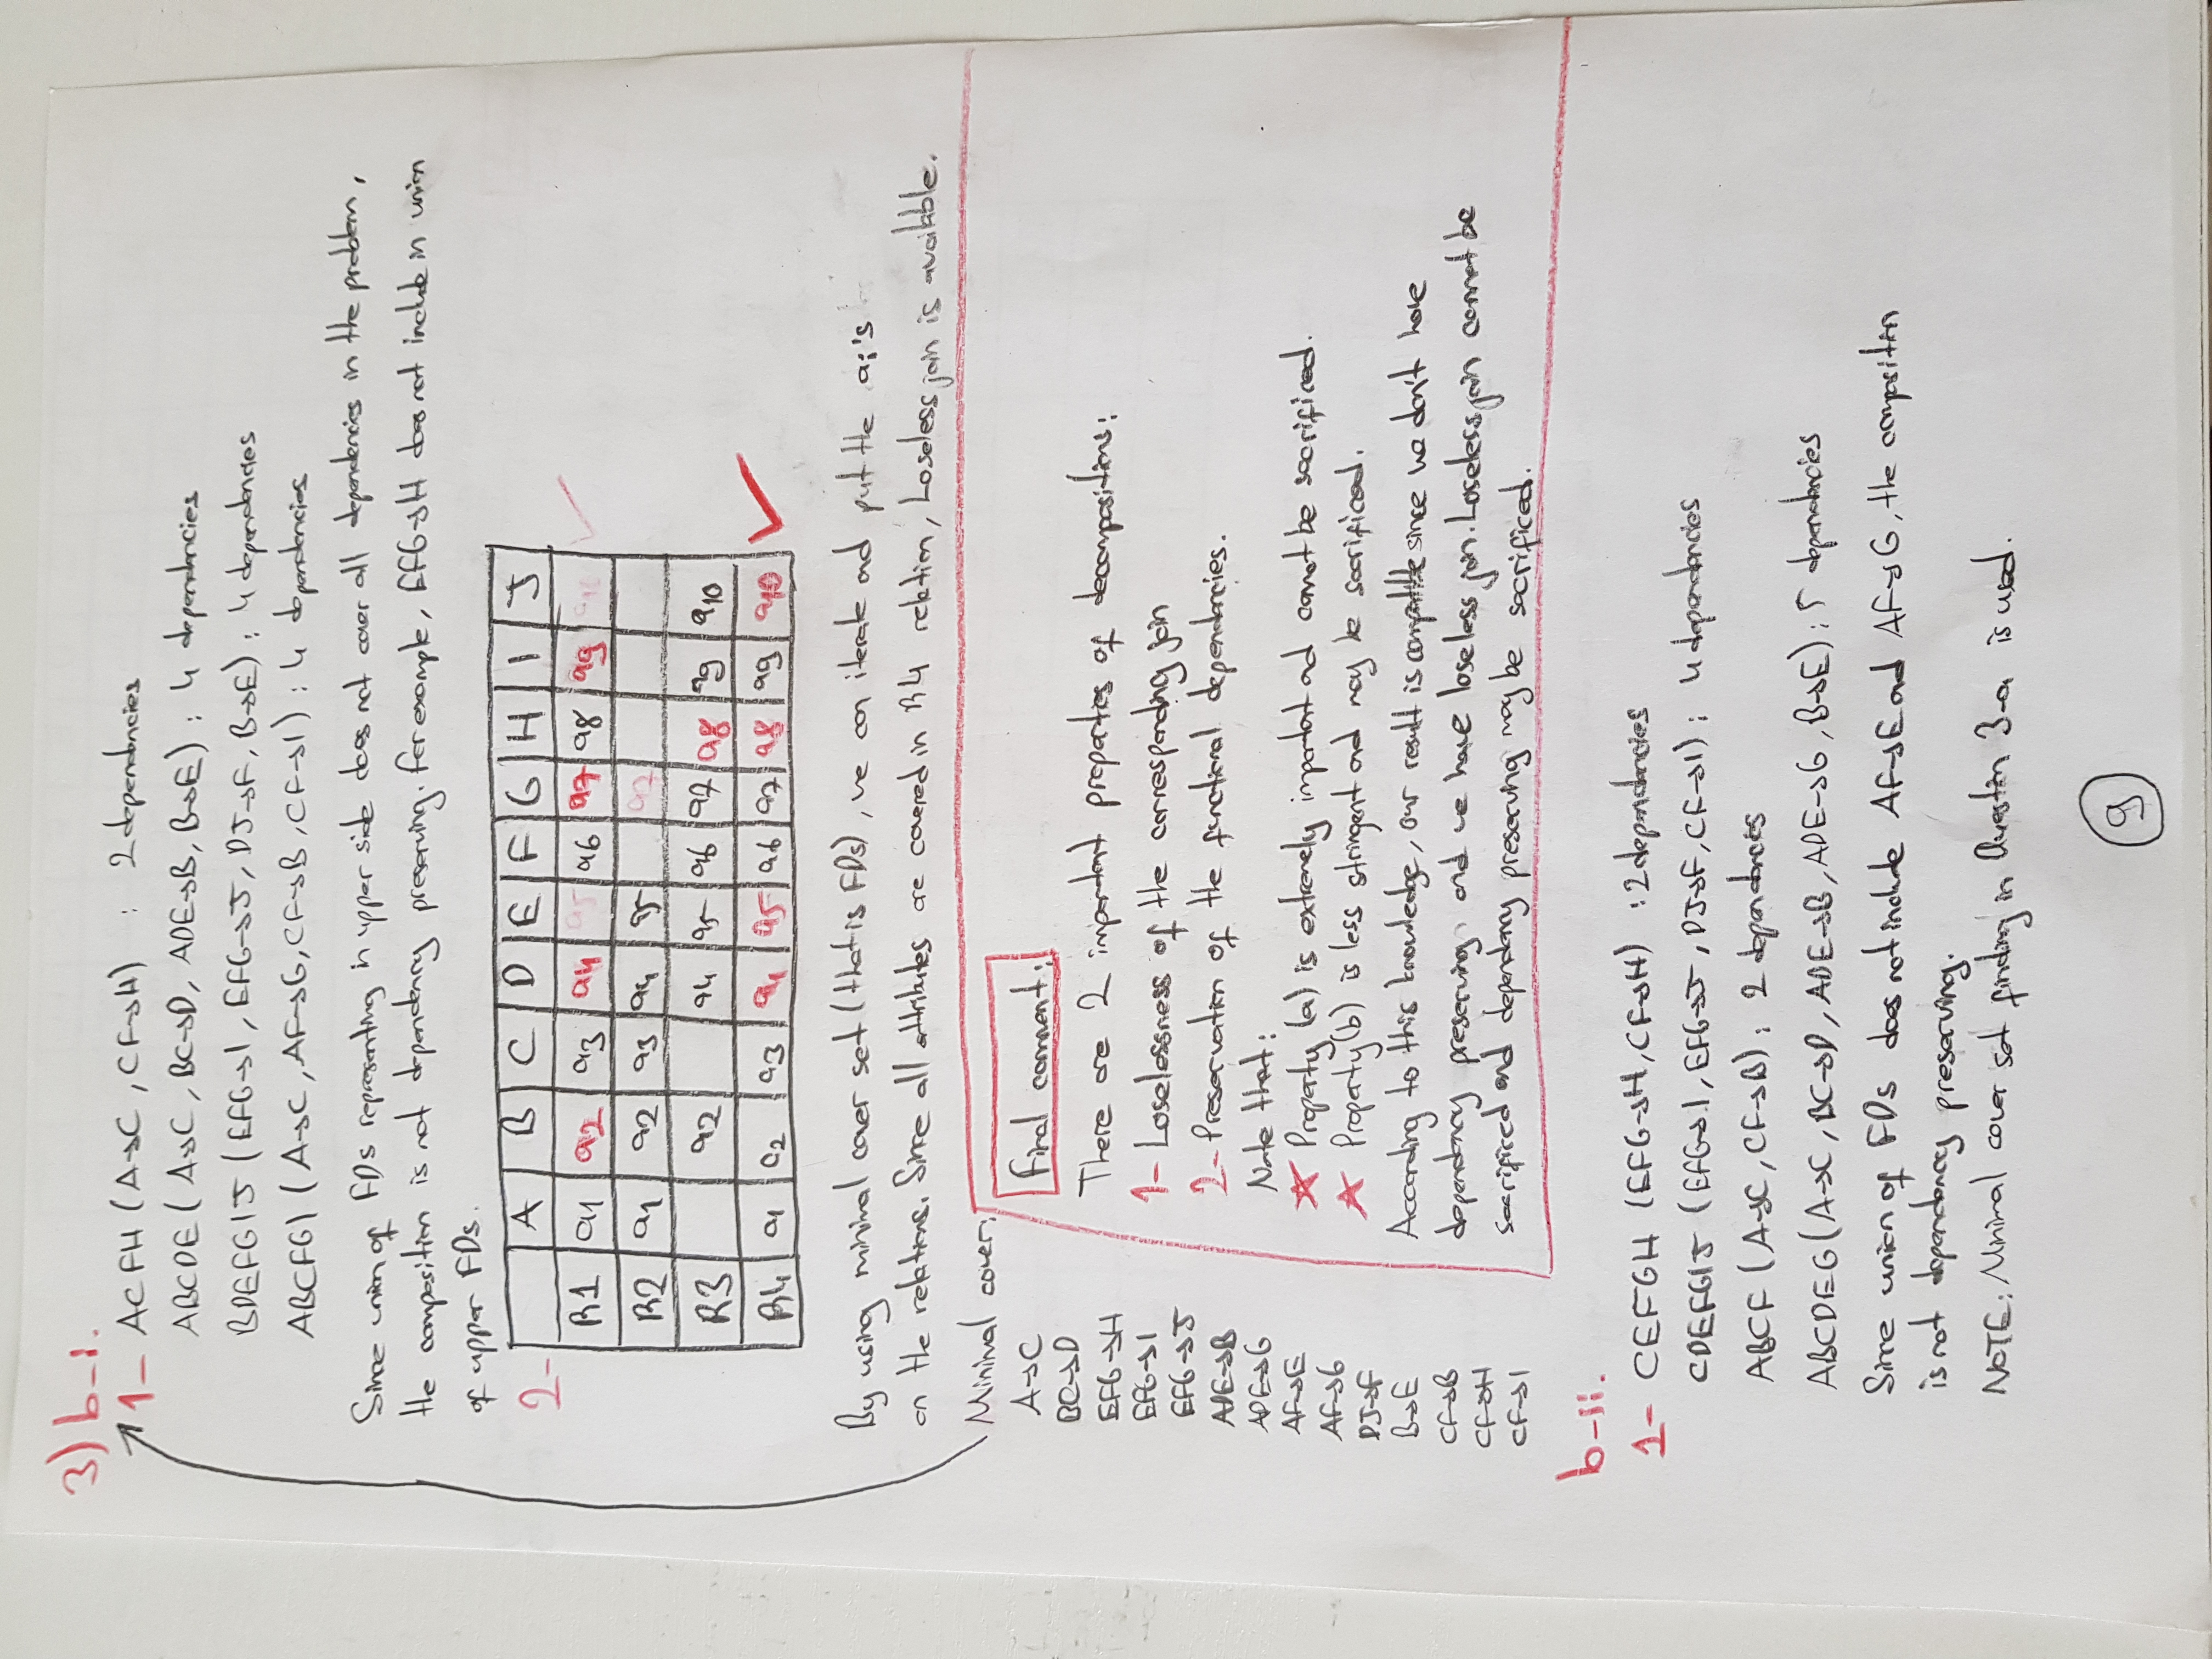 3) b-i.
1- ACFH (A→C, CF→H) : 2 dependencies
ABCDE (A→C, BC→D, ADE→B, B→E) : 4 dependencies
BDEFGIJ (EFG→I, EFG→J, DJ→F, B→E) : 4 dependencies
ABCFGI (A→C, AF→G, CF→B, CF→I) : 4 dependencies
Since union of FDs representing in upper side does not cover all dependencies in the problem,
the composition is not dependency preserving. For example, EFG→H does not include in union
of upper FDs.
2-
A B C D E F G H I J
R1 a1 a2 a3 a4 a5 a6 a7 a8 a9 a10 ✓
R2 a1 a2 a3 a4 a5 a7
R3 a2 a4 a5 a6 a7 a8 a9 a10
R4 a1 a2 a3 a4 a5 a6 a7 a8 a9 a10 ✓
By using minimal cover set (that is FDs), we can iterate and put the ai's
on the relations. Since all attributes are covered in R4 relation, Loseless join is available.
Minimal cover:
A→C
BC→D
EFG→H
EFG→I
EFG→J
ADE→B
ADE→G
AF→E
AF→G
DJ→F
B→E
CF→B
CF→H
CF→I
Final comment:
There are 2 important properties of decompositions:
1- Loselessness of the corresponding join
2- Preservation of the functional dependencies.
Note that:
☆ Property (a) is extremely important and cannot be sacrificed.
☆ Property (b) is less stringent and may be sacrificed.
According to this knowledge, our result is compatible since we don't have
dependency preserving and we have loseless join. Loseless join cannot be
sacrificed and dependency preserving may be sacrificed.
b-ii.
1- CEFGH (EFG→H, CF→H) : 2 dependencies
CDEFGIJ (EFG→I, EFG→J, DJ→F, CF→I) : 4 dependencies
ABCF (A→C, CF→B) : 2 dependencies
ABCDEG (A→C, BC→D, ADE→B, ADE→G, B→E) : 5 dependencies
Since union of FDs does not include AF→E and AF→G, the composition
is not dependency preserving.
NOTE: Minimal cover set finding in Question 3-a is used.
9